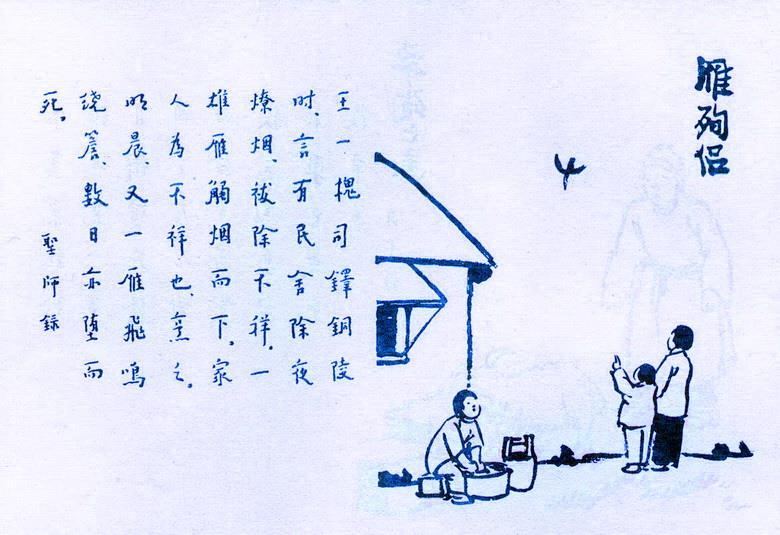 雁殉侣
王一槐司鐸銅陵
时、言有民舍除夜
燎烟、祓除不祥。一
雄雁觸烟而下。家
人為不祥也、烹之。
明晨、又一雁飛鳴
绕簷、數日亦墮而
死。
聖師録